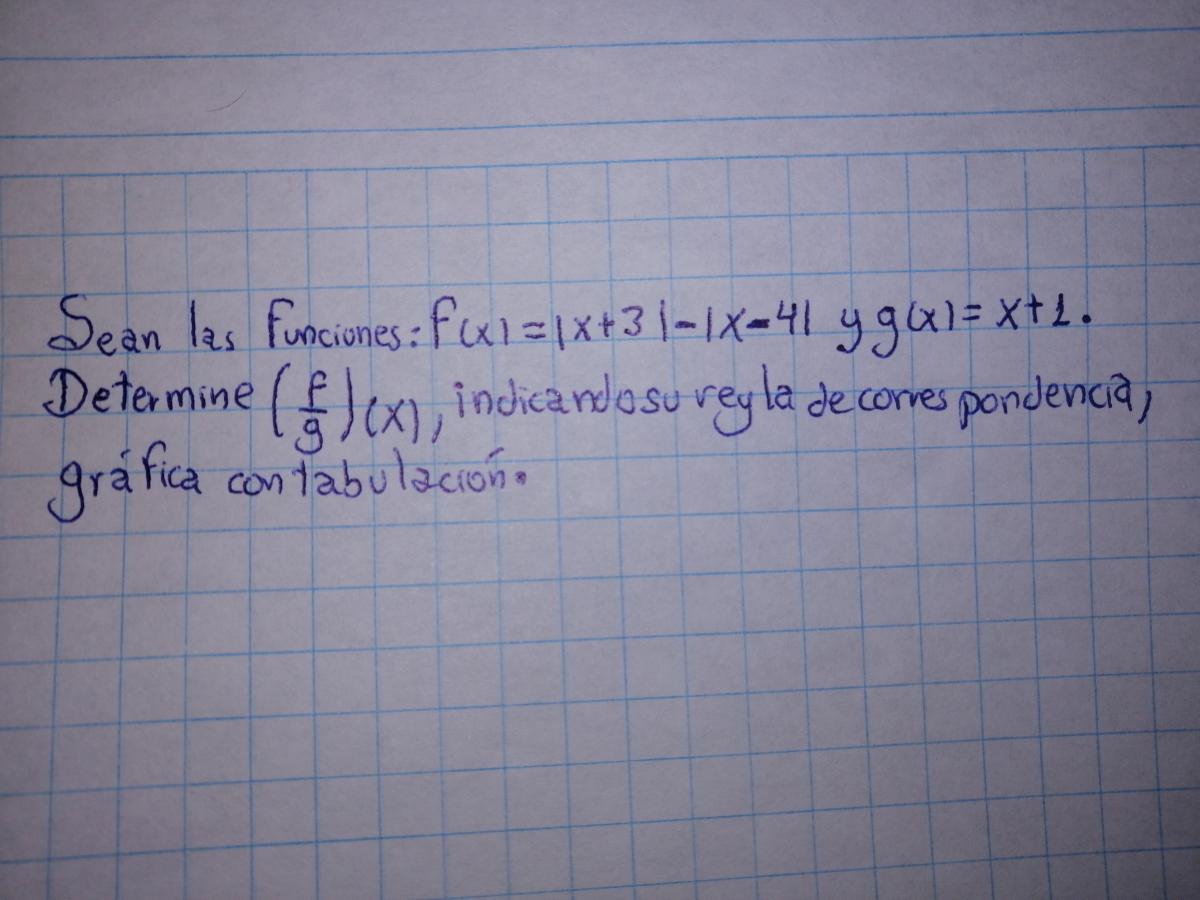 Sean las funciones: f(x) = |x+3|-|x-4| y g(x) = x+1.
Determine (f/g)(x), indicando su regla de correspondencia,
gráfica con tabulación.